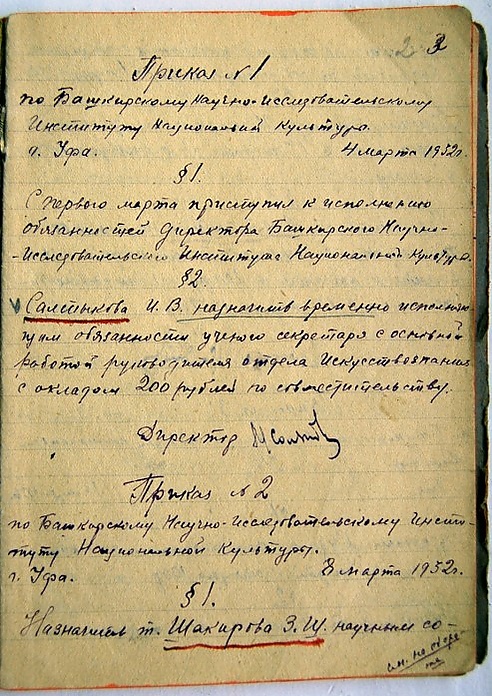 2 3
Приказ № 1
по Башкирскому Научно-Исследовательскому
Институту Национальной Культуры.
г. Уфа. 4 марта 1932г.
§1.
С первого марта приступил к исполнению
обязанностей директора Башкирского Научно-
-Исследовательского Института Национальной Культуры.
§2.
Салтыкова И. В. назначить временно исполняю-
щим обязанности ученого секретаря с основной
работой руководителя отдела Искусствознания
с окладом 200 рублей по совместительству.
Директор
Приказ № 2
по Башкирскому Научно-Исследовательскому Инсти-
туту Национальной Культуры.
г. Уфа. 8 марта 1932г.
§1.
Назначаем т. Шакирова З. Ш. научным со-